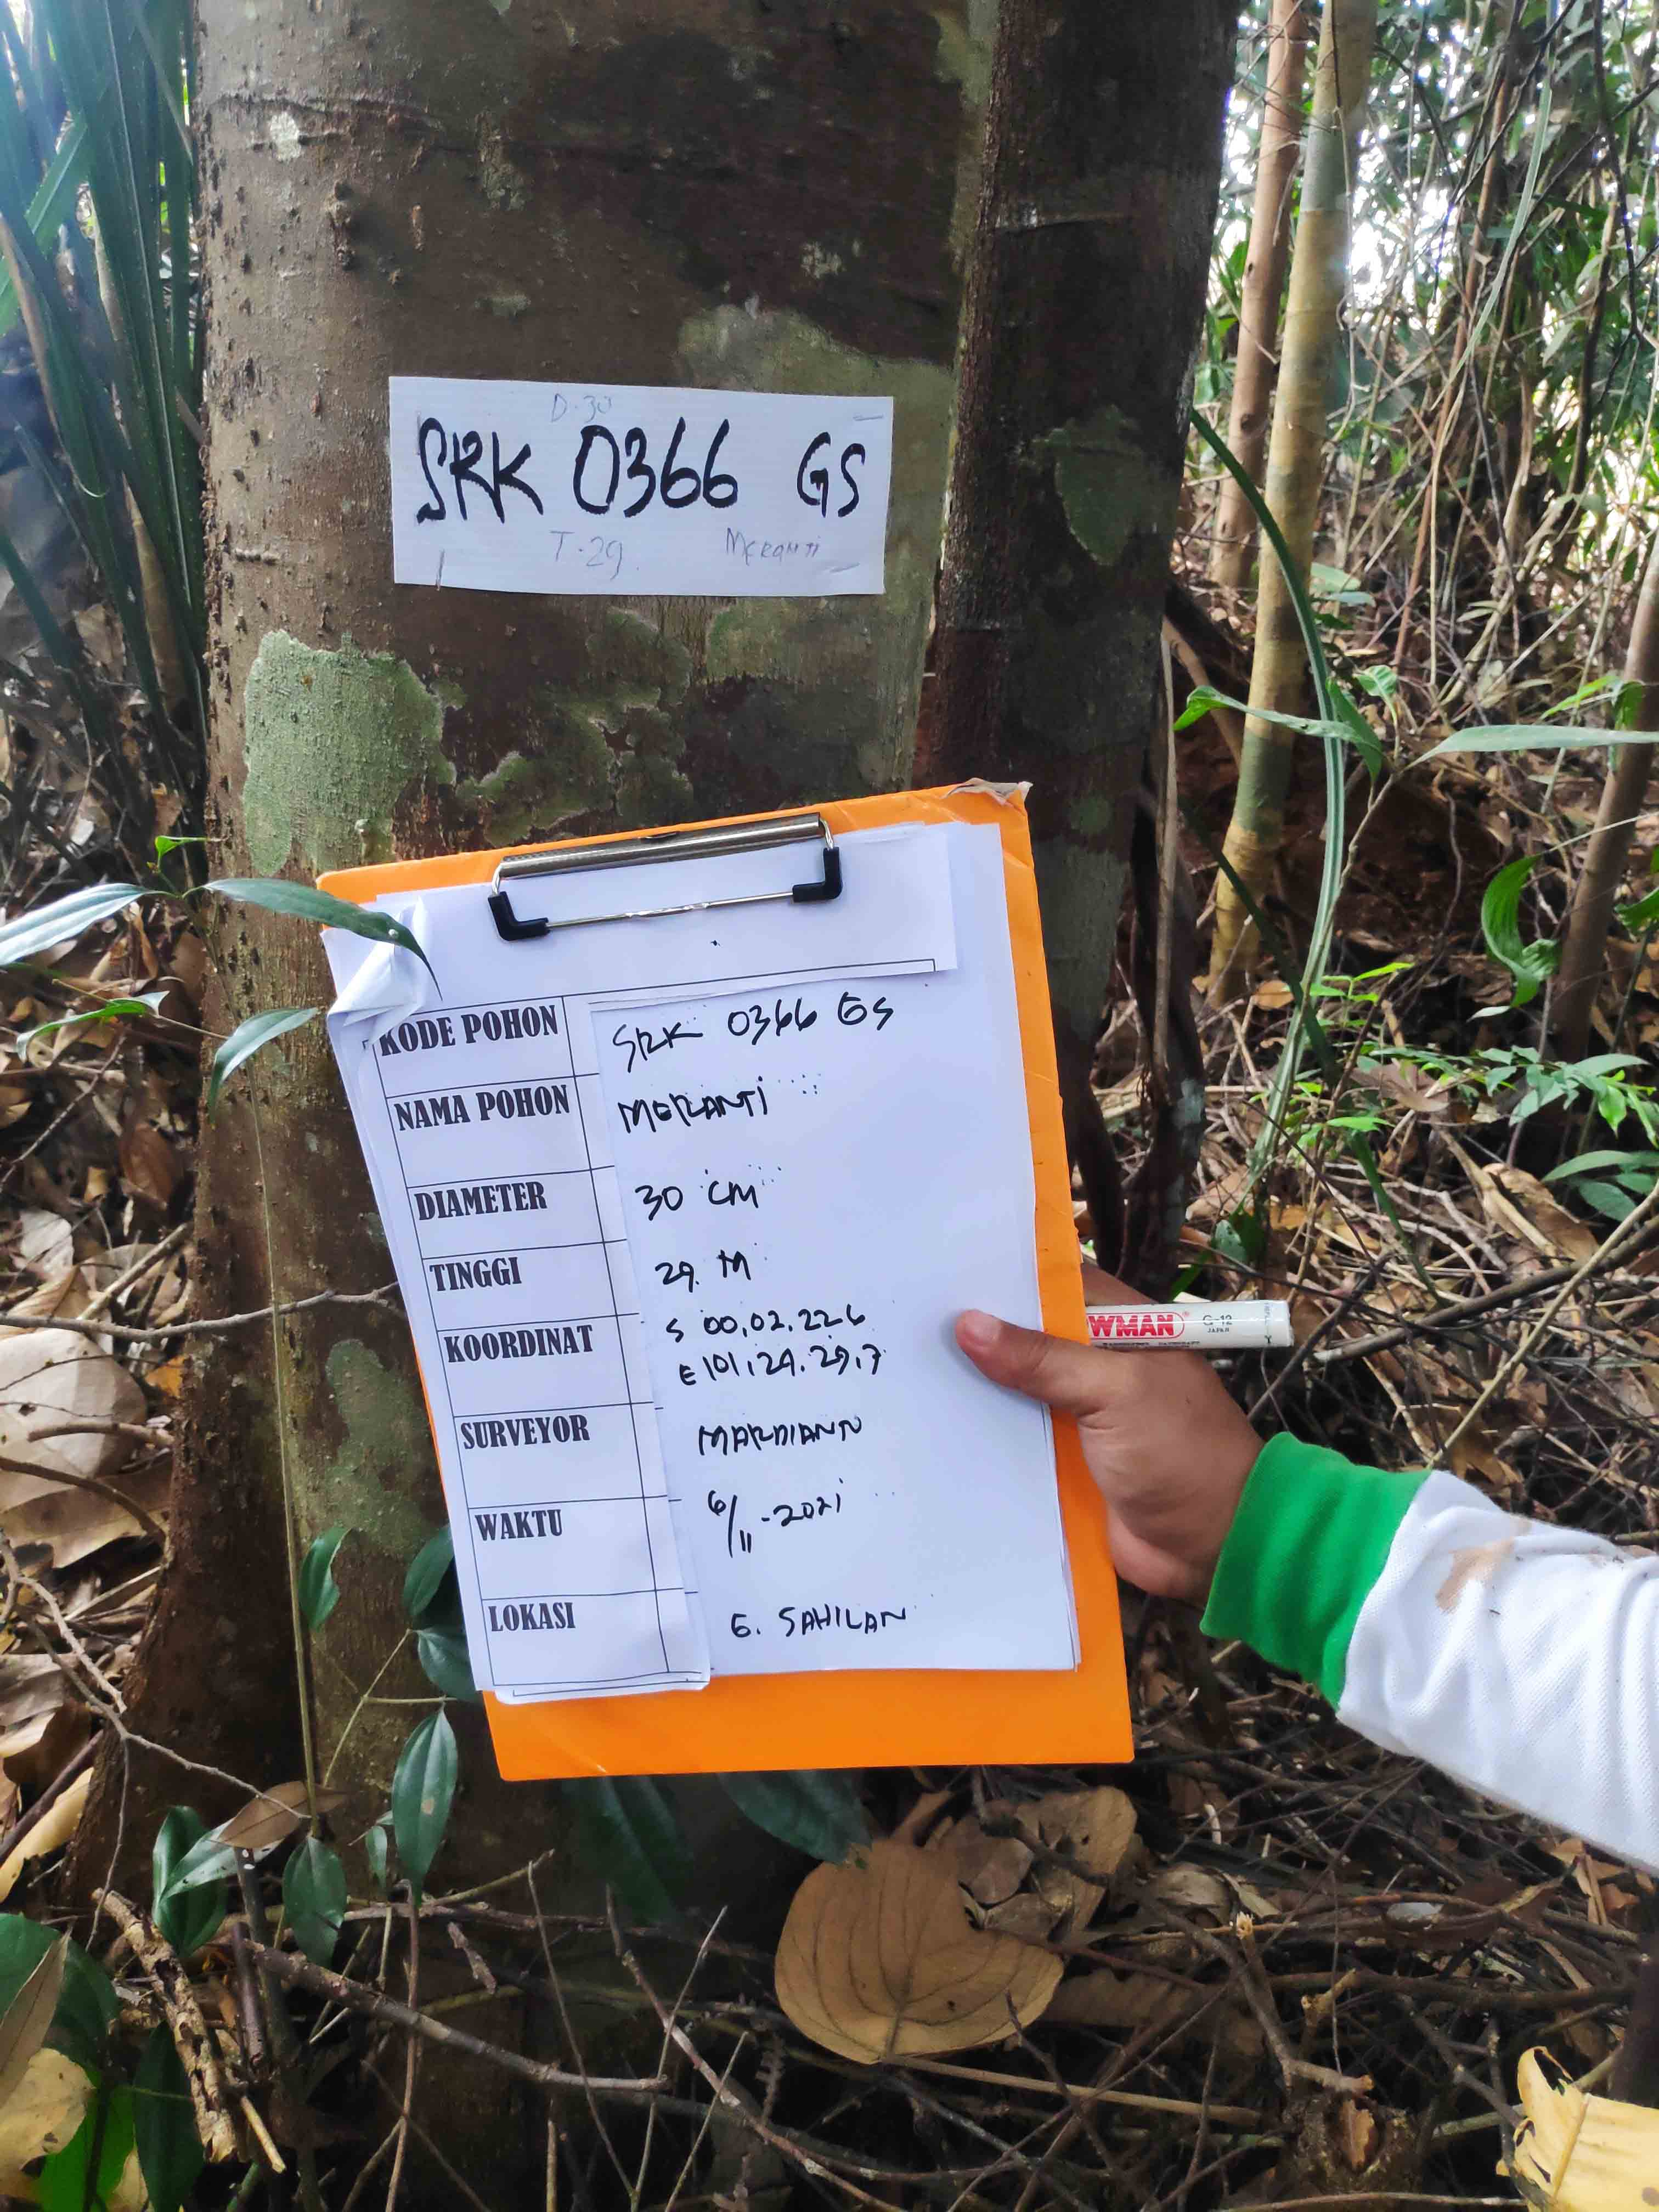 D.30
SRK 0366 GS
T.29 Meranti
KODE POHON SRK 0366 GS
NAMA POHON MERANTI
DIAMETER 30 CM
TINGGI 29 M
KOORDINAT S 00.02.22.6
E 101.29.29.7
SURVEYOR MARDIANTO
WAKTU 6/11-2021
LOKASI G. SAHILAN
WMAN G-12
JAPAN